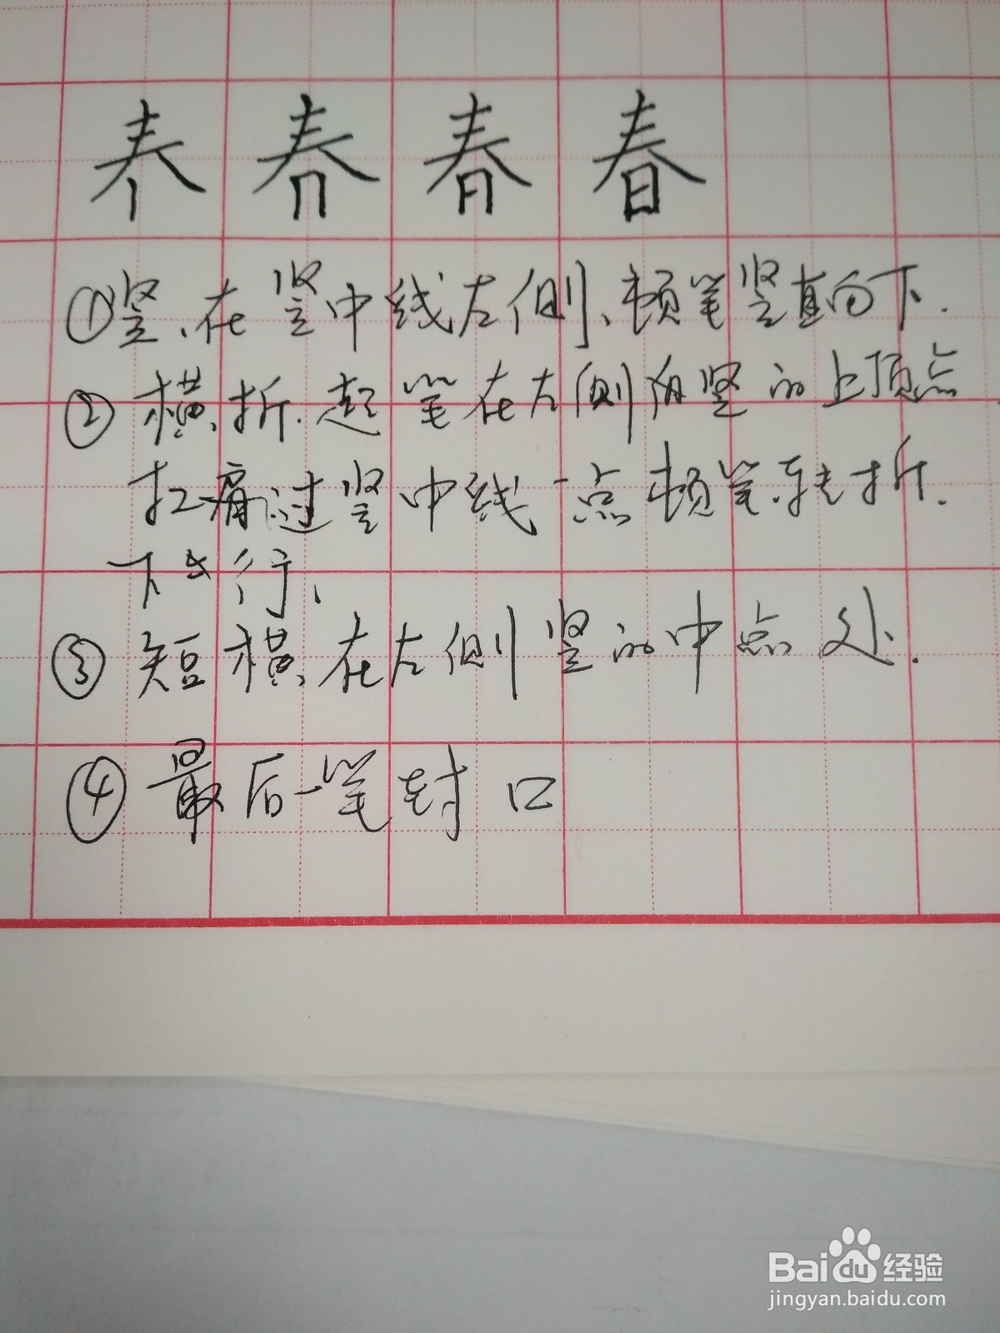 春
①竖、在竖中线左侧、顿笔竖直向下.
②横、折.起笔在左侧 竖的上顶点
扛肩过竖中线一点顿笔转折.
下 行、
③短横、在左侧竖的中点处.
④最后一笔封口
Baidu经验
jingyan.baidu.com